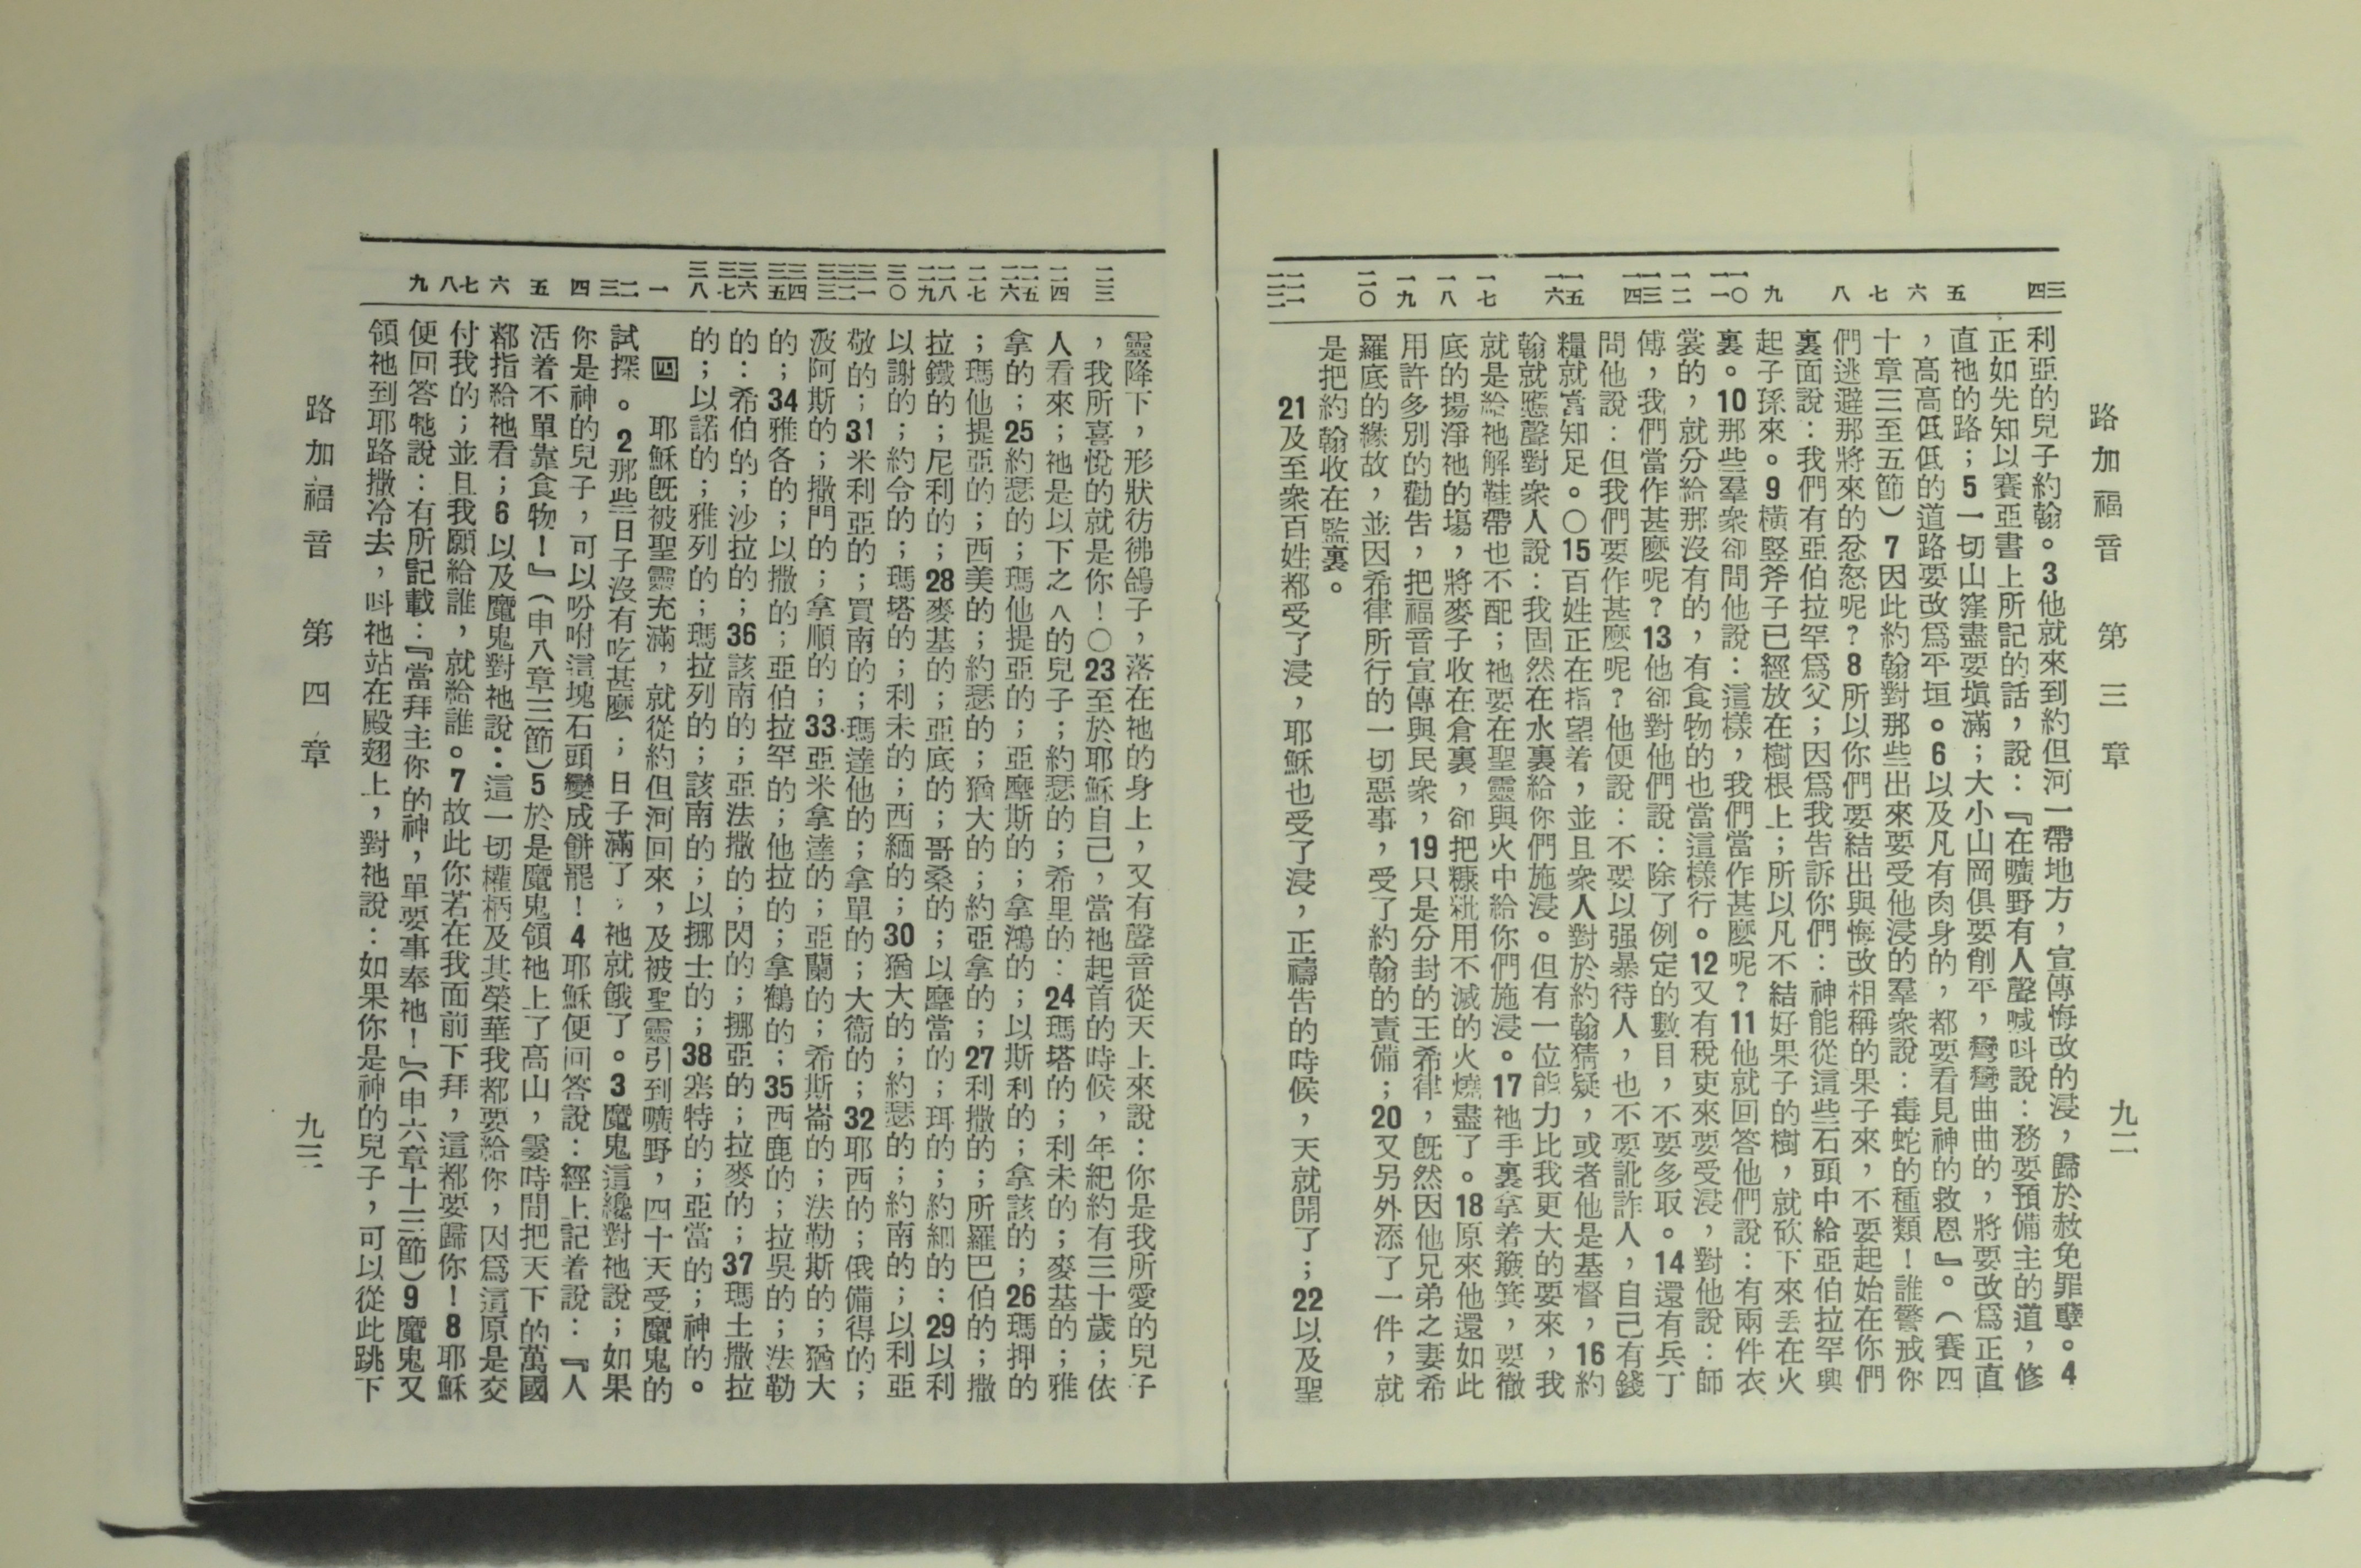 路加福音 第三章 九二
三 四 五 六 七 八 九 一〇 一一 一二 一三 一四 一五 一六 一七 一八 一九 二〇 二一 二二
利亞的兒子約翰。3他就來到約但河一帶地方，宣傳悔改的浸，歸於赦免罪孽。4
正如先知以賽亞書上所記的話，說：『在曠野有人聲喊呌說：務要預備主的道，修
直祂的路；5一切山窪盡要塡滿；大小山岡俱要削平，彎彎曲曲的，將要改爲正直
，高高低低的道路要改爲平垣。6以及凡有肉身的，都要看見神的救恩』。（賽四
十章三至五節）7因此約翰對那些出來要受他浸的羣衆說：毒蛇的種類！誰警戒你
們逃避那將來的忿怒呢？8所以你們要結出與悔改相稱的果子來，不要起始在你們
裏面說：我們有亞伯拉罕爲父；因爲我告訴你們：神能從這些石頭中給亞伯拉罕興
起子孫來。9橫竪斧子已經放在樹根上；所以凡不結好果子的樹，就砍下來丢在火
裏。10那些羣衆卻問他說：這樣，我們當作甚麼呢？11他就回答他們說：有兩件衣
裳的，就分給那沒有的，有食物的也當這樣行。12又有稅吏來要受浸，對他說：師
傅，我們當作甚麼呢？13他卻對他們說：除了例定的數目，不要多取。14還有兵丁
問他說：但我們要作甚麼呢？他便說：不要以强暴待人，也不要訛詐人，自己有錢
糧就當知足。○15百姓正在指望着，並且衆人對於約翰猜疑，或者他是基督，16約
翰就應聲對衆人說：我固然在水裏給你們施浸。但有一位能力比我更大的要來，我
就是給祂解鞋帶也不配；祂要在聖靈與火中給你們施浸。17祂手裏拿着簸箕，要徹
底的揚淨祂的塲，將麥子收在倉裏，卻把糠粃用不滅的火燒盡了。18原來他還如此
用許多別的勸告，把福音宣傳與民衆，19只是分封的王希律，旣然因他兄弟之妻希
羅底的緣故，並因希律所行的一切惡事，受了約翰的責備；20又另外添了一件，就
是把約翰收在監裏。
21及至衆百姓都受了浸，耶穌也受了浸，正禱告的時候，天就開了；22以及聖
二三 二四 二五 二六 二七 二八 二九 三〇 三一 三二 三三 三四 三五 三六 三七 三八 一 二 三 四 五 六 七 八 九
靈降下，形狀彷彿鴿子，落在祂的身上，又有聲音從天上來說：你是我所愛的兒子
，我所喜悅的就是你！○23至於耶穌自己，當祂起首的時候，年紀約有三十歲；依
人看來；祂是以下之人的兒子；約瑟的；希里的：24瑪塔的；利未的；麥基的；雅
拿的；25約瑟的；瑪他提亞的；亞摩斯的；拿鴻的；以斯利的；拿該的；26瑪押的
；瑪他提亞的；西美的；約瑟的；猶大的；約亞拿的；27利撒的；所羅巴伯的；撒
拉鐵的；尼利的；28麥基的；亞底的；哥桑的；以摩當的；珥的；約細的；29以利
以謝的；約令的；瑪塔的；利未的；西緬的；30猶大的；約瑟的；約南的；以利亞
敬的；31米利亞的；買南的；瑪達他的；拿單的；大衞的；32耶西的；俄備得的；
波阿斯的；撒門的；拿順的；33亞米拿達的；亞蘭的；希斯崙的；法勒斯的；猶大
的；34雅各的；以撒的；亞伯拉罕的；他拉的；拿鶴的；35西鹿的；拉吳的；法勒
的：希伯的；沙拉的；36該南的；亞法撒的；閃的；挪亞的；拉麥的；37瑪土撒拉
的；以諾的；雅列的；瑪拉列的；該南的；以挪士的；38塞特的；亞當的；神的。
四 耶穌旣被聖靈充滿，就從約但河回來，及被聖靈引到曠野，四十天受魔鬼的
試探。2那些日子沒有吃甚麼；日子滿了，祂就餓了。3魔鬼這纔對祂說；如果
你是神的兒子，可以吩咐這塊石頭變成餅罷！4耶穌便回答說：經上記着說：『人
活着不單靠食物！』（申八章三節）5於是魔鬼領祂上了高山，霎時間把天下的萬國
都指給祂看；6以及魔鬼對祂說：這一切權柄及其榮華我都要給你，因爲這原是交
付我的；並且我願給誰，就給誰。7故此你若在我面前下拜，這都要歸你！8耶穌
便回答牠說：有所記載：『當拜主你的神，單要事奉祂！』（申六章十三節）9魔鬼又
領祂到耶路撒冷去，呌祂站在殿翅上，對祂說：如果你是神的兒子，可以從此跳下
路加福音 第四章 九三